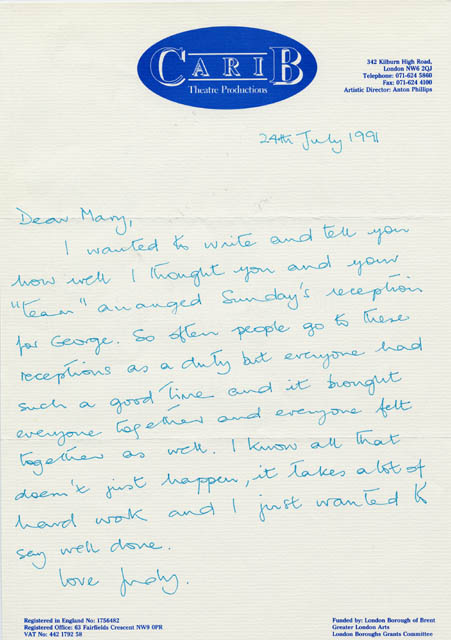 CARIB
Theatre Productions
342 Kilburn High Road,
London NW6 2QJ
Telephone: 071-624 5860
Fax: 071-624 4100
Artistic Director: Anton Phillips
24th July 1991
Dear Mary,
I wanted to write and tell you
how well I thought you and your
"team" arranged Sunday's reception
for George. So often people go to these
receptions as a duty but everyone had
such a good time and it brought
everyone together and everyone felt
together as well. I know all that
doesn't just happen, it takes a lot of
hard work and I just wanted to
say well done.
love Judy.
Registered in England No: 1756482
Registered Office: 63 Fairfields Crescent NW9 0PR
VAT No: 442 1792 58
Funded by: London Borough of Brent
Greater London Arts
London Boroughs Grants Committee